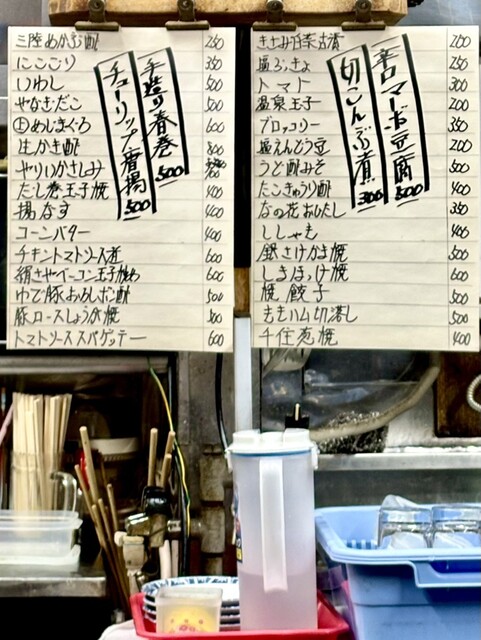 三陸めかぶ酢 250
にこごり 350
いわし 500
やなぎだこ 500
㊤めじまぐろ 600
生かき酢 800
やりいかさしみ
だし巻玉子焼 400
揚なす 400
コーンバター 400
チキントマトソース煮 600
絹さやベーコン玉子焼 600
ゆで豚おろしポン酢 500
豚ロースしょうが焼 500
トマトソーススパゲッテー 600
手造り春巻 500
チューリップ唐揚 500
きざみ白菜古漬 200
塩らっきょ 250
トマト 300
温泉玉子 200
ブロッコリー 350
塩えんどう豆 200
うど酢みそ 500
たこきゅうり酢 400
なの花おひたし 350
ししゃも 400
銀さけかま焼 500
しまほっけ焼 600
焼餃子 500
生ハム切落し 500
千住葱焼 400
辛口マーボ豆腐 500
切こんぶ煮 300